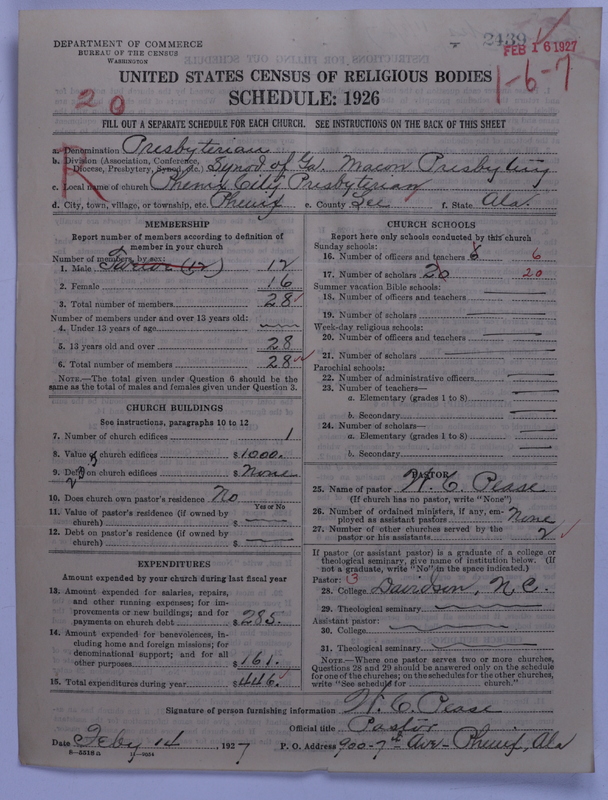 DEPARTMENT OF COMMERCE
BUREAU OF THE CENSUS
WASHINGTON
2439
FEB 16 1927
1-6-7
UNITED STATES CENSUS OF RELIGIOUS BODIES
SCHEDULE: 1926
20
FILL OUT A SEPARATE SCHEDULE FOR EACH CHURCH. SEE INSTRUCTIONS ON THE BACK OF THIS SHEET
R
a. Denomination Presbyterian
b. Division (Association, Conference, Diocese, Presbytery, Synod, etc.) Synod of Ga. Macon
c. Local name of church Phenix City Presbyterian
d. City, town, village, or township, etc. Phenix e. County Lee f. State Ala.
MEMBERSHIP
Report number of members according to definition of
member in your church
Number of members, by sex:
1. Male (12) 12
2. Female 16
3. Total number of members 28
Number of members under and over 13 years old:
4. Under 13 years of age
5. 13 years old and over 28
6. Total number of members 28
NOTE.—The total given under Question 6 should be the
same as the total of males and females given under Question 3.
CHURCH BUILDINGS
See instructions, paragraphs 10 to 12
7. Number of church edifices 1
8. Value of church edifices $1000.
9. Debt on church edifices $None
10. Does church own pastor's residence No
Yes or No
11. Value of pastor's residence (if owned by
church) $
12. Debt on pastor's residence (if owned by
church) $
EXPENDITURES
Amount expended by your church during last fiscal year
13. Amount expended for salaries, repairs,
and other running expenses; for im-
provements or new buildings; and for
payments on church debt $285.
14. Amount expended for benevolences, in-
cluding home and foreign missions; for
denominational support; and for all
other purposes $161.
15. Total expenditures during year $446.
CHURCH SCHOOLS
Report here only schools conducted by this church
Sunday schools:
16. Number of officers and teachers 6 6
17. Number of scholars 20 20
Summer vacation Bible schools:
18. Number of officers and teachers
19. Number of scholars
Week-day religious schools:
20. Number of officers and teachers
21. Number of scholars
Parochial schools:
22. Number of administrative officers
23. Number of teachers—
a. Elementary (grades 1 to 8)
b. Secondary
24. Number of scholars—
a. Elementary (grades 1 to 8)
b. Secondary
PASTOR
25. Name of pastor W. C. Pease
(If church has no pastor, write "None")
26. Number of ordained ministers, if any, em-
ployed as assistant pastors None
27. Number of other churches served by the
pastor or his assistants 2
If pastor (or assistant pastor) is a graduate of a college or
theological seminary, give name of institution below. (If
not a graduate, write "No" in the space indicated.)
Pastor: 3
28. College Davidson, N.C.
29. Theological seminary
Assistant pastor:
30. College
31. Theological seminary
NOTE.—Where one pastor serves two or more churches,
Questions 28 and 29 should be answered only on the schedule
for one of the churches; on the schedules for the other churches,
write "See schedule for church."
Signature of person furnishing information W. C. Pease
Official title Pastor
Date Feby 14, 1927 P. O. Address 900-7th Ave - Phenix, Ala
8-5518a